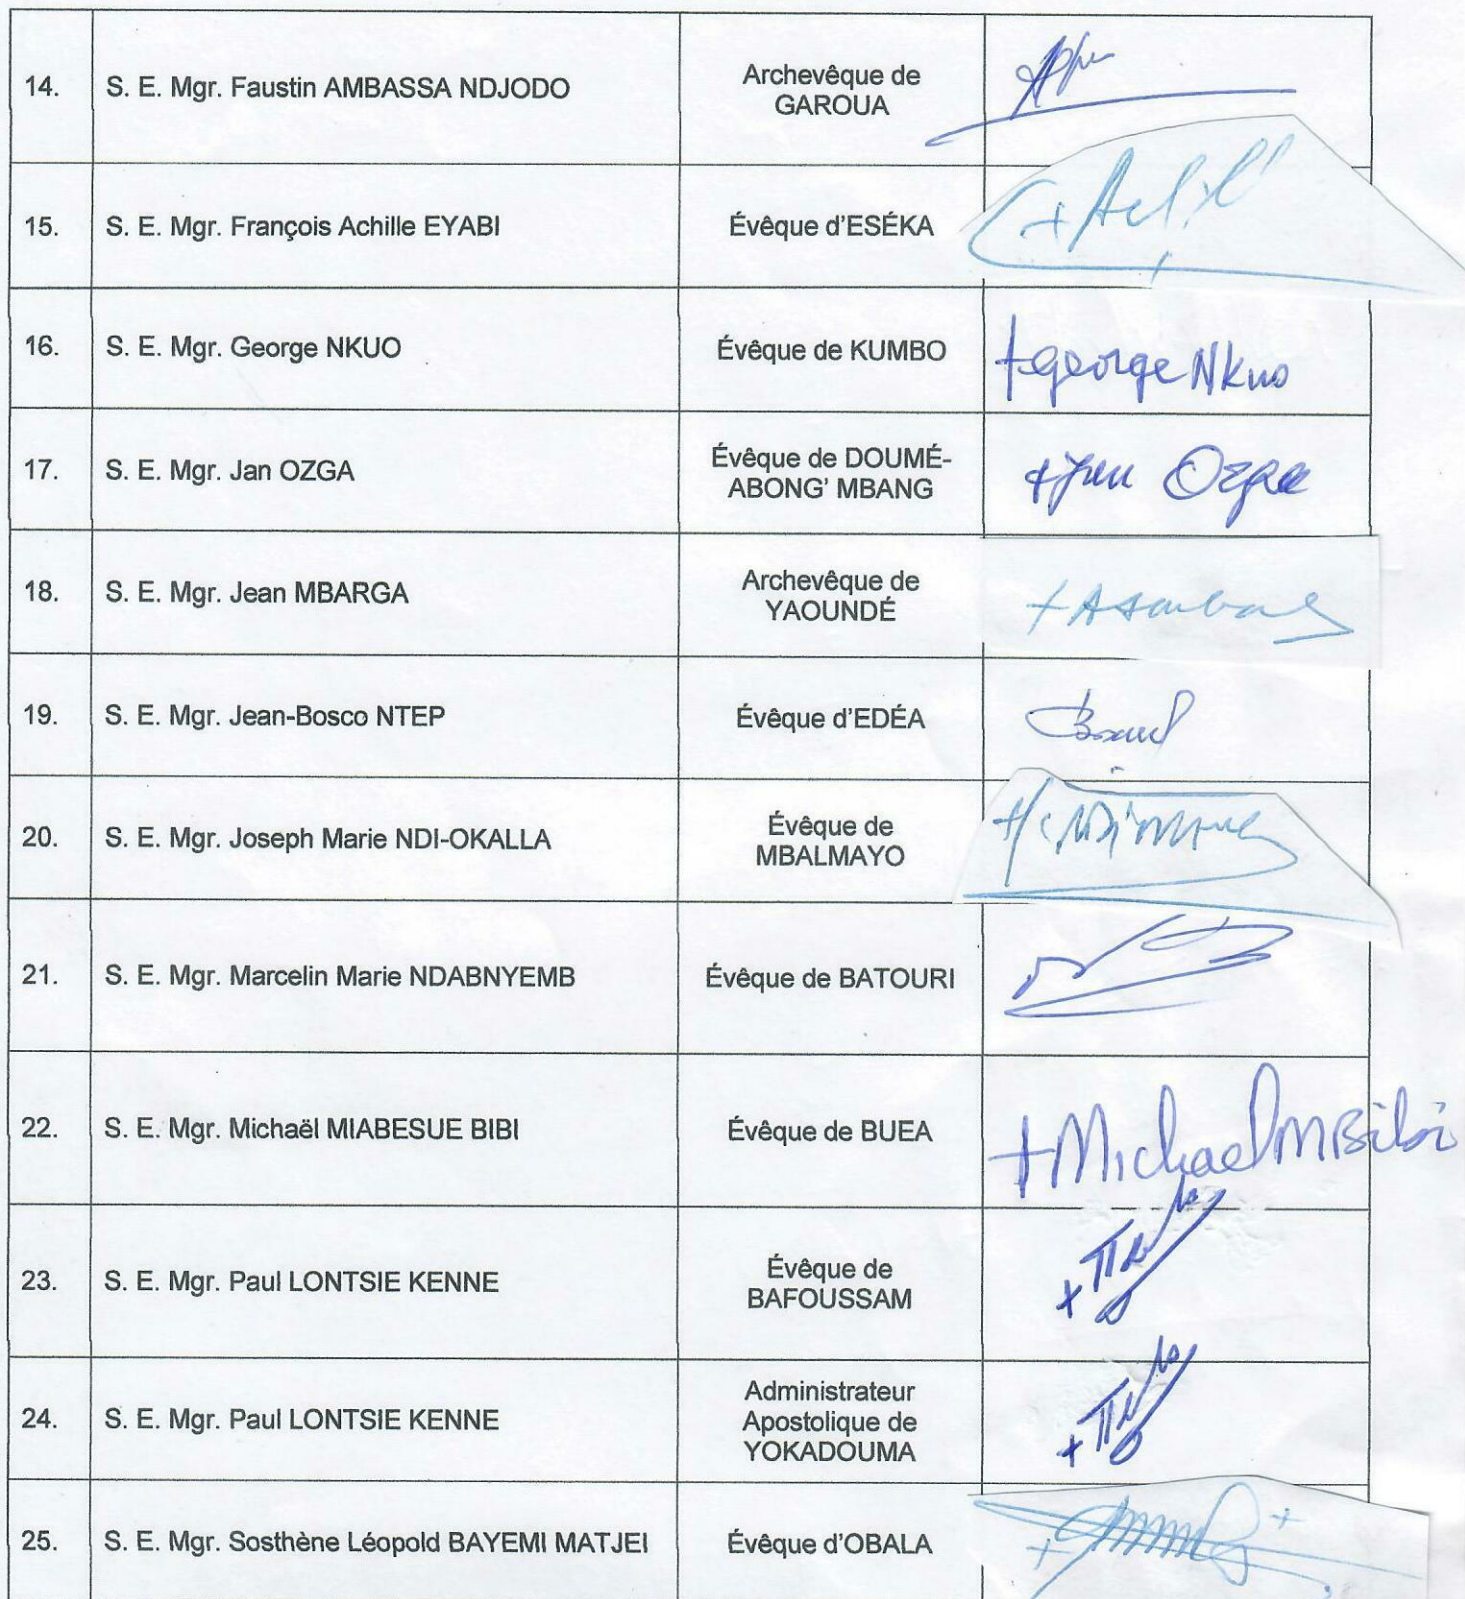 14. S. E. Mgr. Faustin AMBASSA NDJODO Archevêque de
GAROUA
15. S. E. Mgr. François Achille EYABI Évêque d'ESÉKA
16. S. E. Mgr. George NKUO Évêque de KUMBO +George NKuo
17. S. E. Mgr. Jan OZGA Évêque de DOUMÉ-
ABONG' MBANG +Jan Ozga
18. S. E. Mgr. Jean MBARGA Archevêque de
YAOUNDÉ
19. S. E. Mgr. Jean-Bosco NTEP Évêque d'EDÉA
20. S. E. Mgr. Joseph Marie NDI-OKALLA Évêque de
MBALMAYO
21. S. E. Mgr. Marcelin Marie NDABNYEMB Évêque de BATOURI
22. S. E. Mgr. Michaël MIABESUE BIBI Évêque de BUEA +Michael M Bibi
23. S. E. Mgr. Paul LONTSIE KENNE Évêque de
BAFOUSSAM
24. S. E. Mgr. Paul LONTSIE KENNE Administrateur
Apostolique de
YOKADOUMA
25. S. E. Mgr. Sosthène Léopold BAYEMI MATJEI Évêque d'OBALA